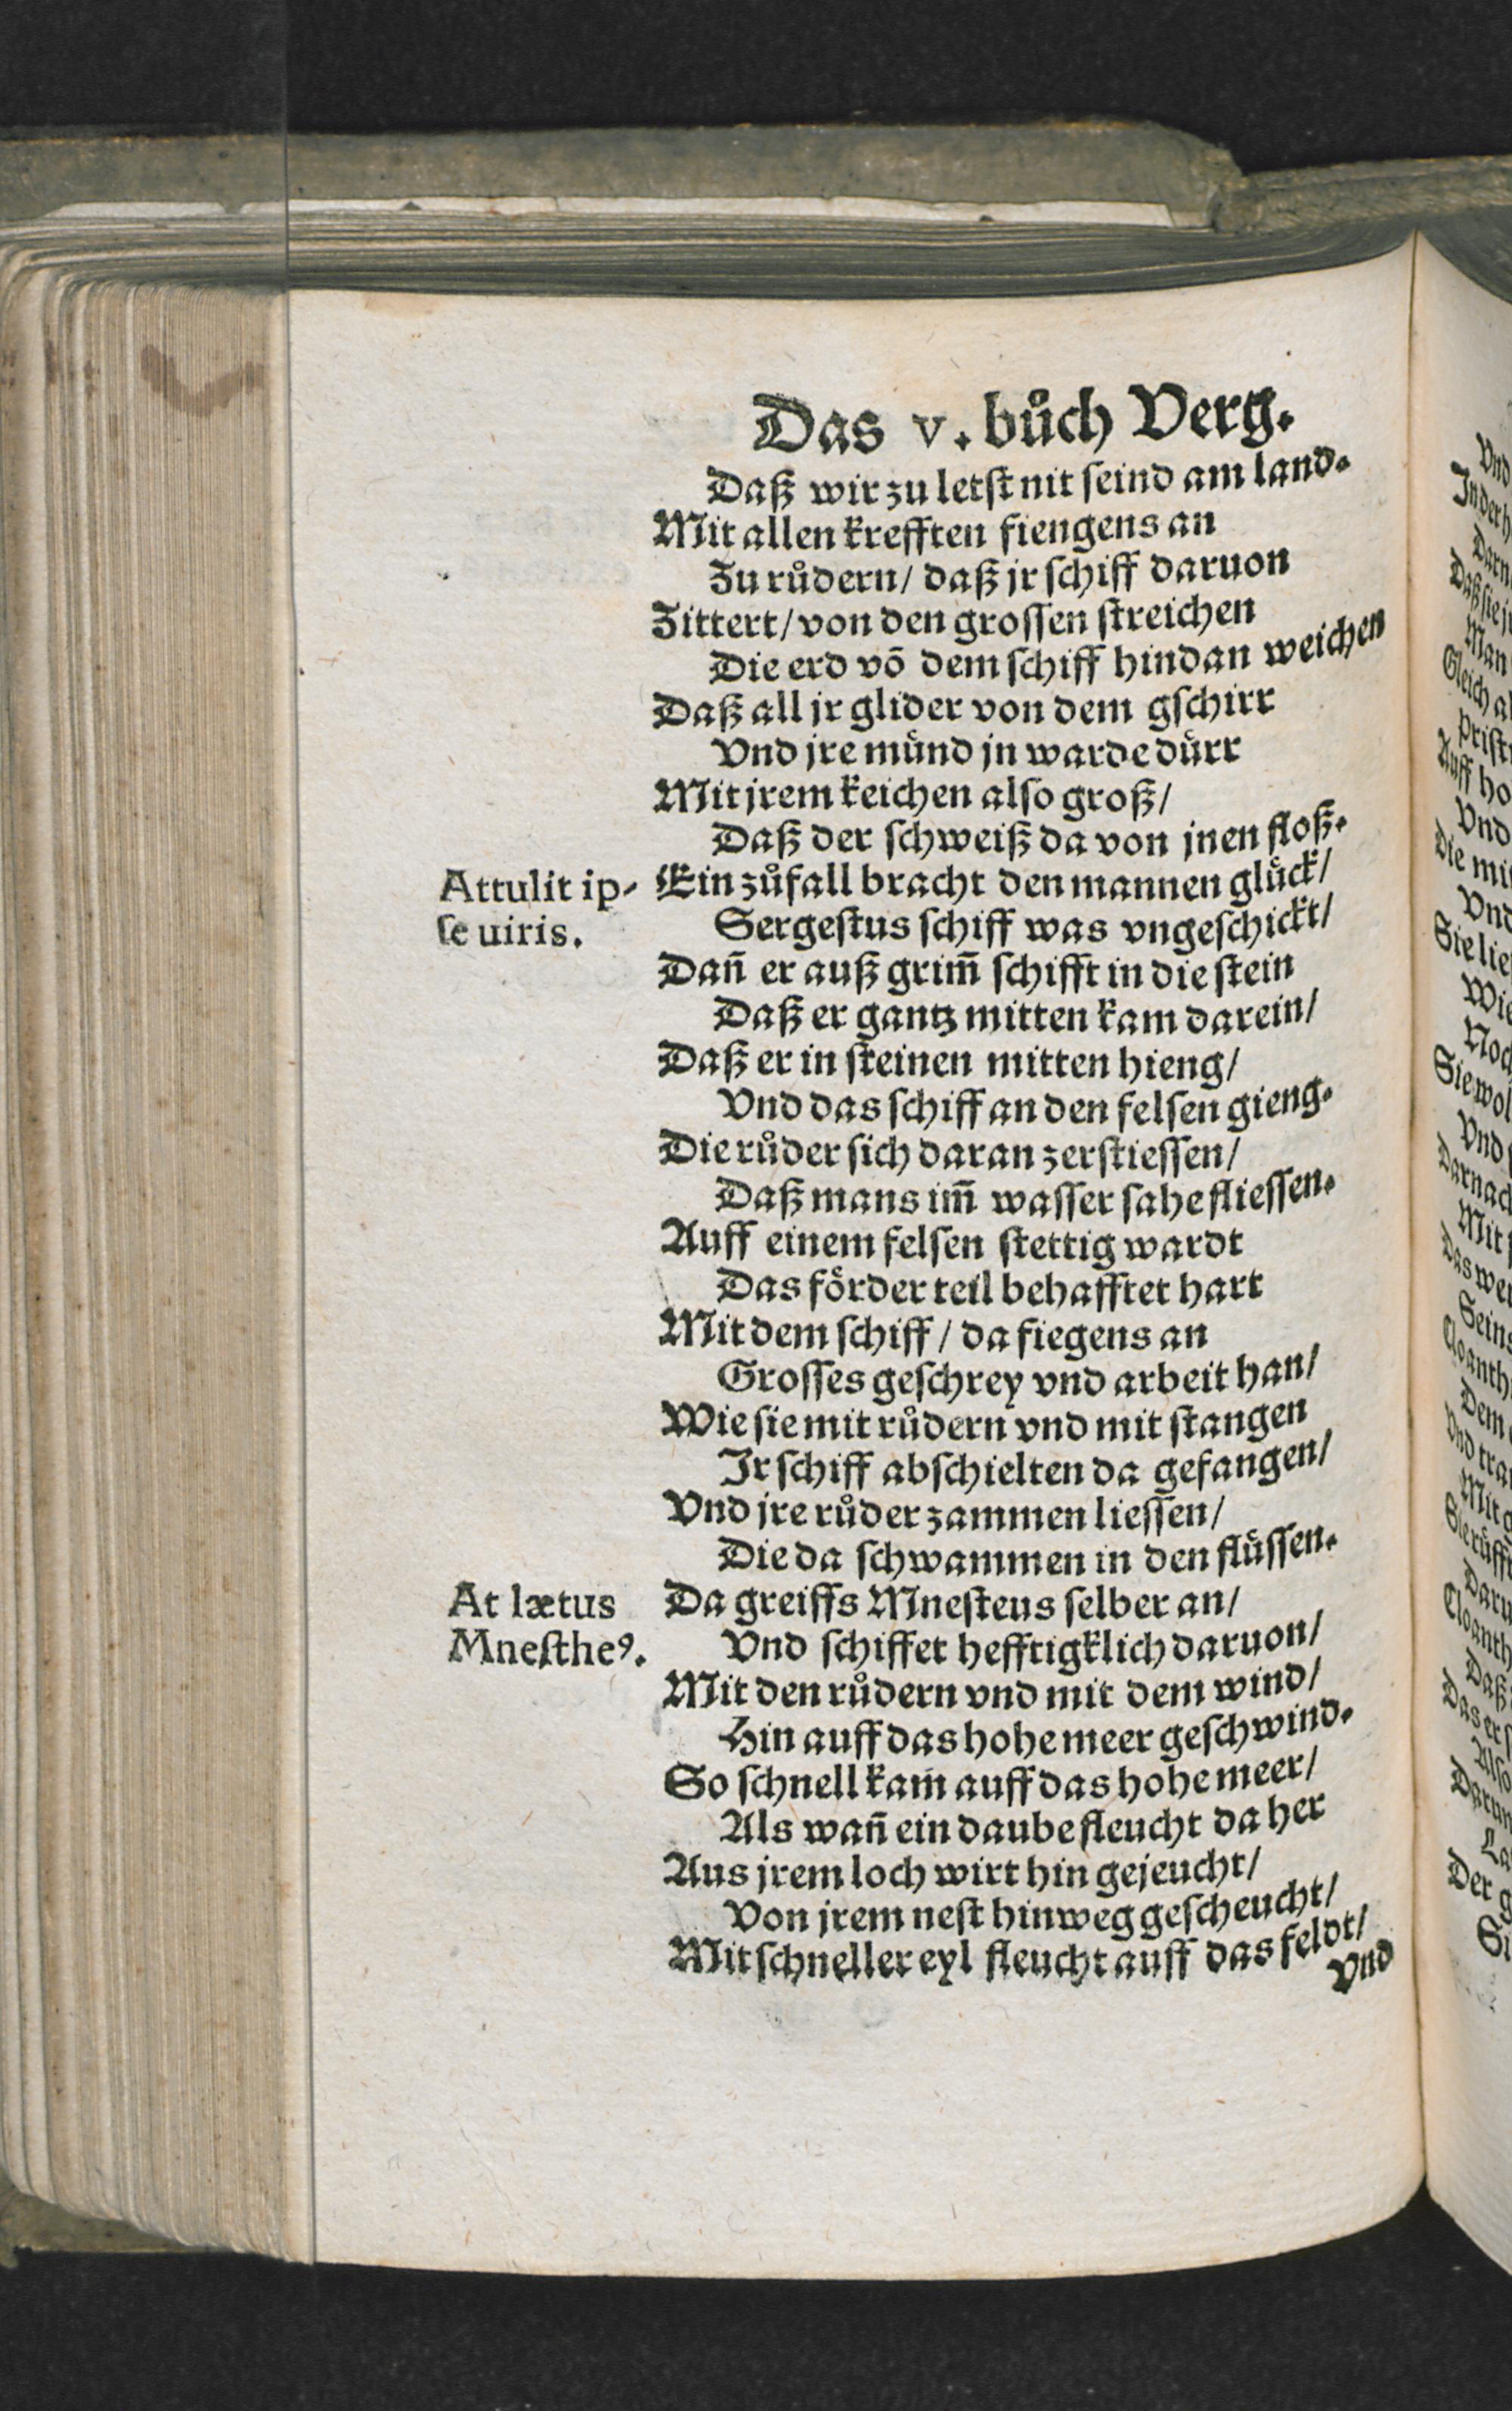 Das v. bůch Verg.
Daß wir zu letſt nit ſeind am land.
Mit allen krefften fiengens an
Zu růdern/ daß jr ſchiff daruon
Zittert/ von den groſſen ſtreichen
Die erd võ dem ſchiff hindan weichen
Daß all jr glider von dem gſchirr
Vnd jre münd jn warde dürr
Mit jrem keichen alſo groß/
Daß der ſchweiß da von jnen floß.
Attulit ip-
ſe uiris.
Ein zůfall bracht den mannen glück/
Sergeſtus ſchiff was vngeſchickt/
Dañ er auß grim̃ ſchifft in die ſtein
Daß er gantz mitten kam darein/
Daß er in ſteinen mitten hieng/
Vnd das ſchiff an den felſen gieng.
Die růder ſich daran zerſtieſſen/
Daß mans im̃ waſſer ſahe flieſſen.
Auff einem felſen ſtettig wardt
Das förder teil behafftet hart
Mit dem ſchiff/ da fiegens an
Groſſes geſchrey vnd arbeit han/
Wie ſie mit růdern vnd mit ſtangen
Ir ſchiff abſchielten da gefangen/
Vnd jre růder zammen lieſſen/
Die da ſchwammen in den flüſſen.
At lætus
Mneſtheꝰ.
Da greiffs Mneſteus ſelber an/
Vnd ſchiffet hefftigklich daruon/
Mit den růdern vnd mit dem wind/
Hin auff das hohe meer geſchwind.
So ſchnell kam auff das hohe meer/
Als wañ ein daube fleucht da her
Aus jrem loch wirt hin gejeucht/
Von jrem neſt hinweg geſcheucht/
Mit ſchneller eyl fleucht auff das feldt/
Vnd